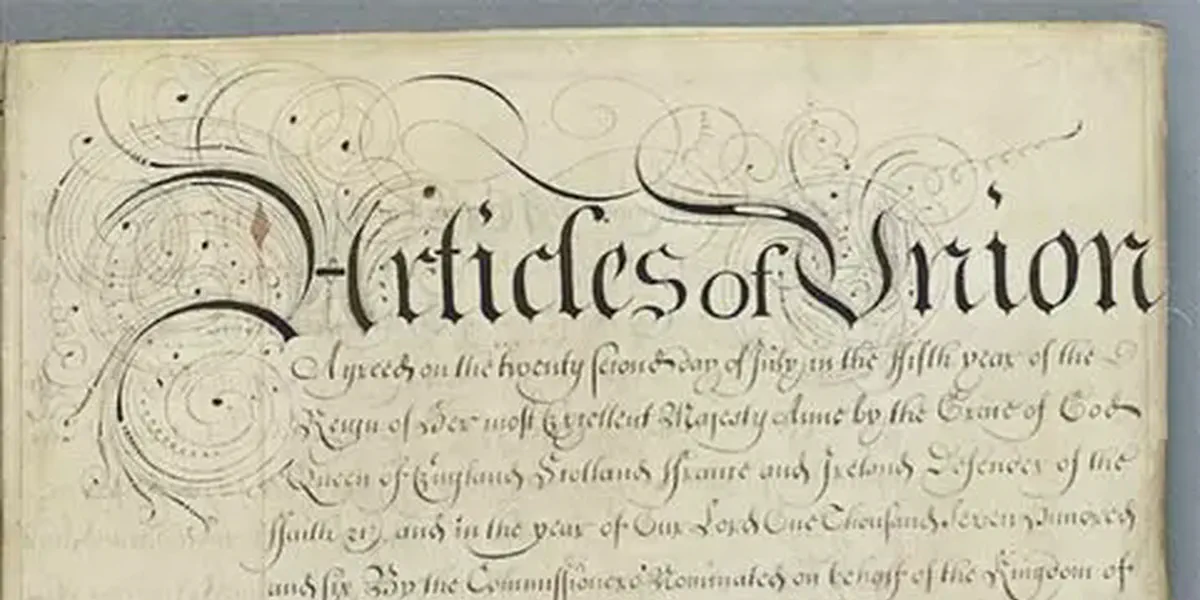 Articles of Union
Agreed on the twenty second day of July, in the ffifth year of the
Reign of Her most Excellent Majesty Anne by the Grace of God
Queen of England Scotland ffrance and Ireland Defender of the
ffaith &c, and in the year of Our Lord One Thousand Seven Hundred
and six By the Commissioners Nominated on behalf of the Kingdom of